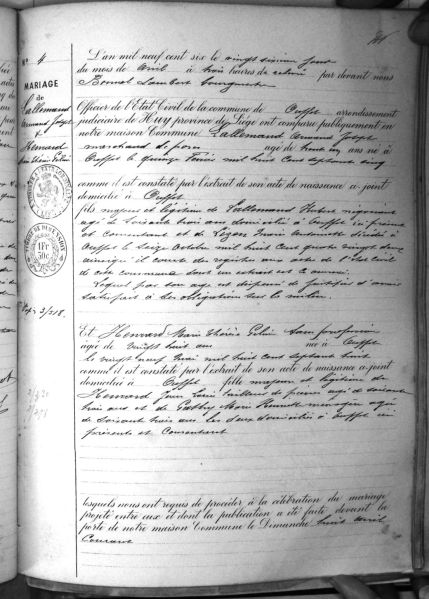 N° 4
MARIAGE
de
Lallemand
Armand Joseph
et
Henrard
Marie Thérèse Félicie
1 Fr
50c
L'an mil neuf cent six le vingt sixième jour
du mois de avril à trois heures de relevée par devant nous
Bonnet Lambert bourgmestre
Officier de l'Etat Civil de la commune de Ouffet arrondissement
judiciaire de Huy province de Liége ont comparu publiquement en
notre maison Commune Lallemand Armand Joseph
marchand de porcs agé de trente un ans né à
Ouffet le quinze mil huit cent septante cinq
comme il est constaté par l'extrait de son acte de naissance ci-joint
domicilié à Ouffet
fils majeur et légitime de Lallemand Hubert négociant
agé de soixante trois ans domicilié à Ouffet ici présent
et consentant et de Marie Antoinette décédée à
Ouffet le seize Octobre mil huit cent quatre vingt deux
ainsi qu'il conste du registre aux actes de l'Etat civil
de cette commune dont un extrait est ci annexé.
Lequel par son age est dispensé de justifier d'avoir
satisfait à ses obligations sur la milice.
Et Henrard Marie Thérèse Félicie Sans profession
agée de vingt huit ans née à Ouffet
le vingt neuf mil huit cent septante huit
comme il est constaté par l'extrait de son acte de naissance ci-joint
domiciliée à Ouffet fille majeure et légitime de
Henrard Jean Louis tailleur de pierres agé de soixante
trois ans et de Marie ménagère agée
de soixante trois ans les deux domiciliés à Ouffet ici
présents et Consentant
lesquels nous ont requis de procéder à la célébration du mariage
projeté entre eux et dont la publication a été faite devant la
porte de notre maison Commune le Dimanche huit avril
Courant